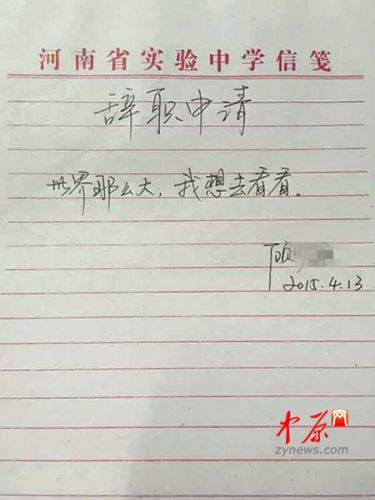 河南省实验中学信笺
辞职申请
世界那么大，我想去看看。
顾
2015.4.13
中原网
zynews.com